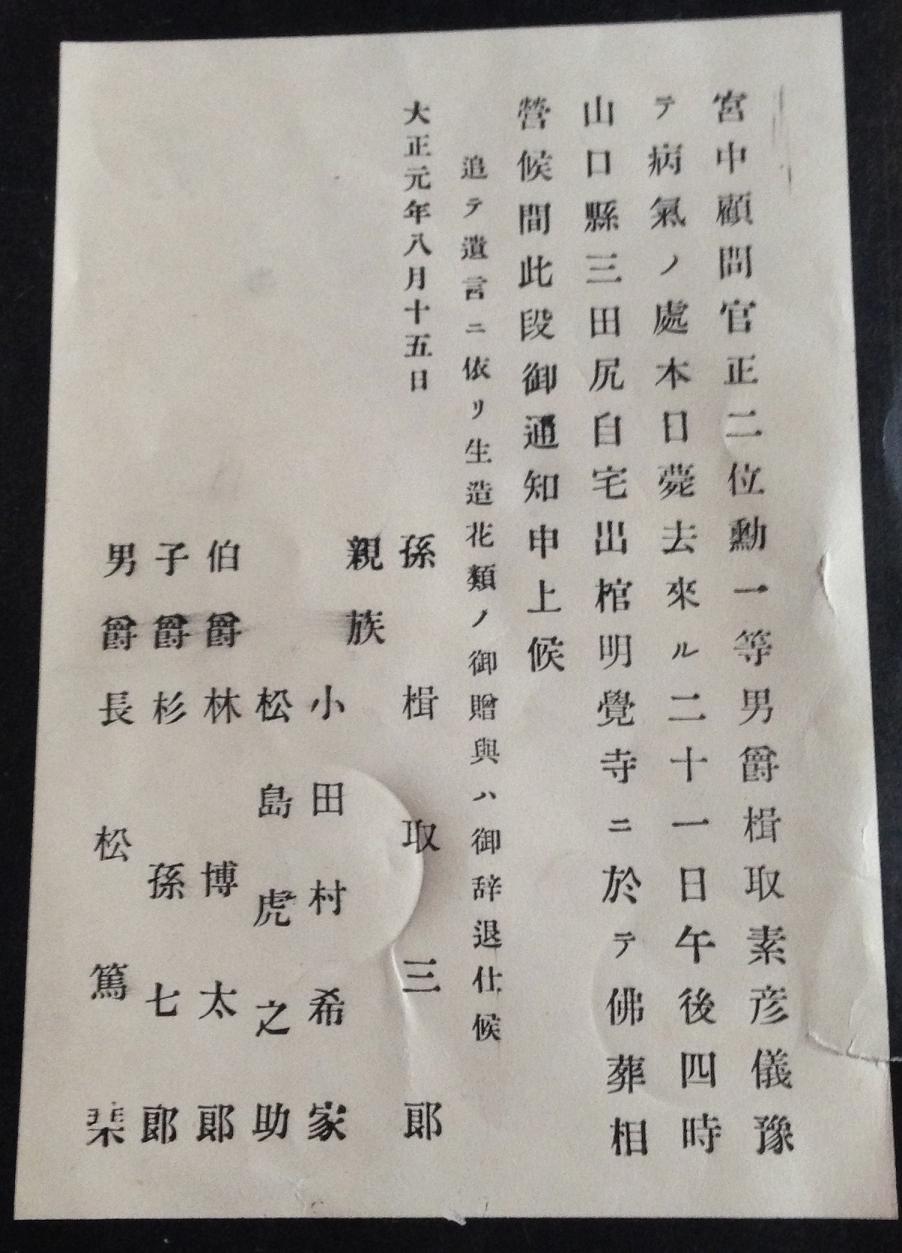 宮中顧問官正二位勳一等男爵楫取素彦儀豫
テ病氣ノ處本日薨去來ル二十一日午後四時
山口縣三田尻自宅出棺明覺寺ニ於テ佛葬相
營候間此段御通知申上候
追テ遺言ニ依リ生造花類ノ御贈與ハ御辞退仕候
大正元年八月十五日
孫 楫取三郎
親族 小田村希家
松島虎之助
伯爵 林博太郎
子爵 杉孫七郎
男爵 長松篤棐